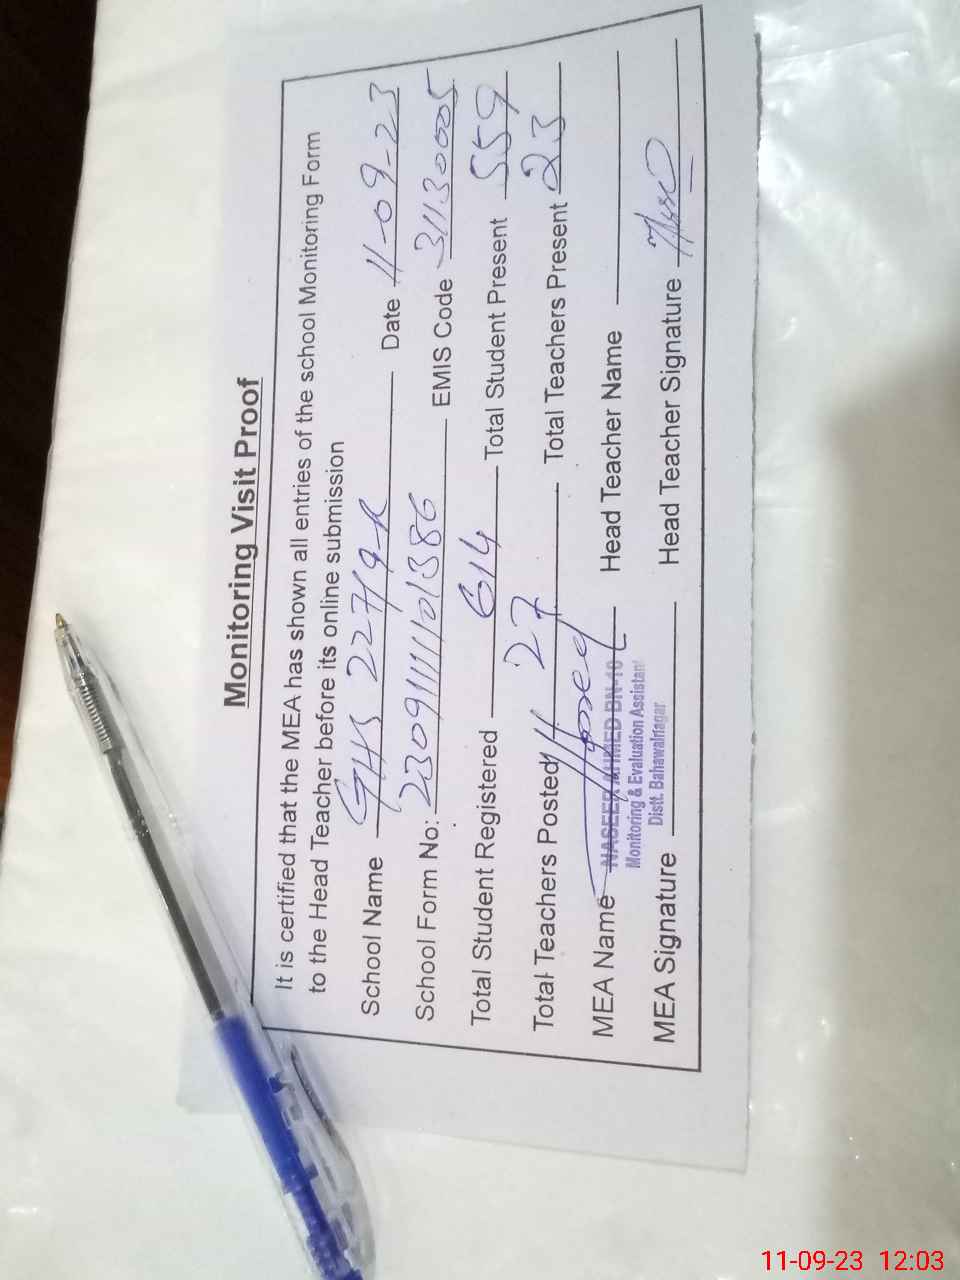 Monitoring Visit Proof
It is certified that the MEA has shown all entries of the school Monitoring Form
to the Head Teacher before its online submission
School Name GHS 227/9-R Date 11-09-23
School Form No: 2309111101386 EMIS Code 31130005
Total Student Registered 614 Total Student Present 559
Total Teachers Posted 27 Total Teachers Present 23
MEA Name NASEER AHMED BN-10 Head Teacher Name
Monitoring & Evaluation Assistant
Distt. Bahawalnagar
MEA Signature Head Teacher Signature
11-09-23 12:03